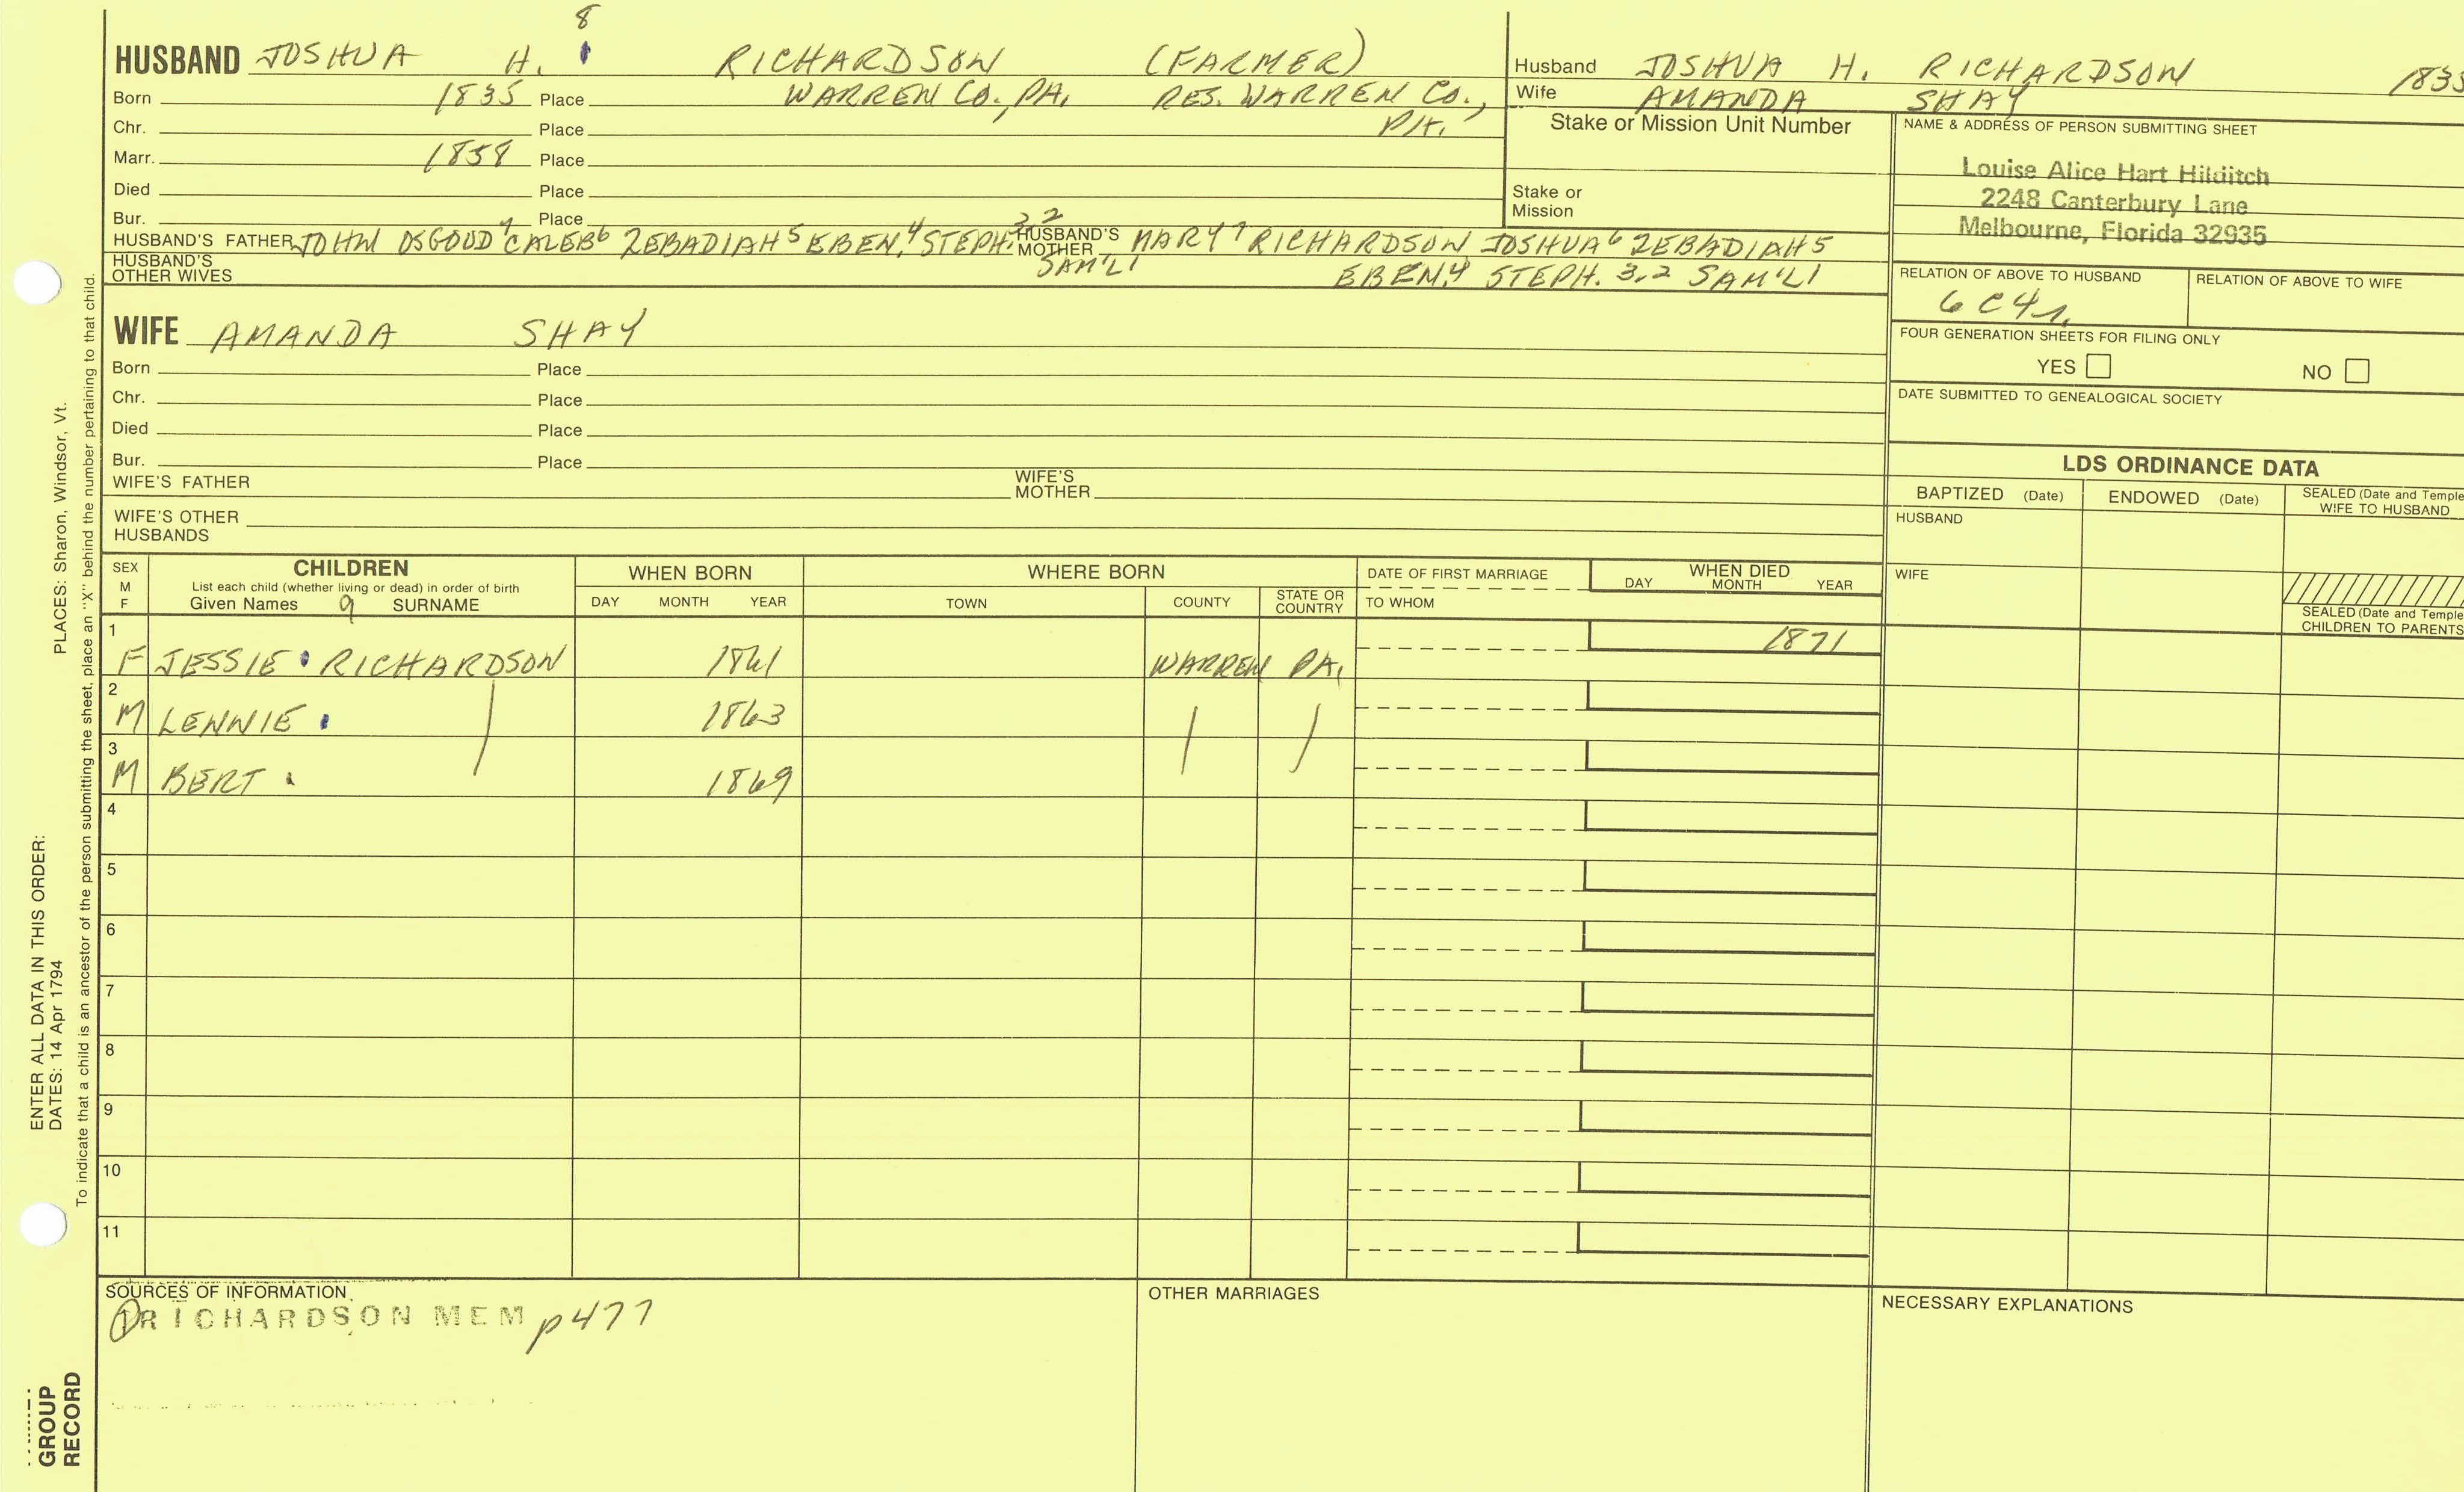 8
HUSBAND JOSHUA H. RICHARDSON (FARMER)
Born 1835 Place WARREN CO., PA, RES. WARREN CO., PA.
Chr. Place
Marr. 1858 Place
Died Place
Bur. Place
HUSBAND'S FATHER JOHN OSGOOD 7 CALEB 6 ZEBADIAH 5 EBEN. 4 STEPH. 3 2 SAM'L 1 HUSBAND'S MOTHER MARY 7 RICHARDSON JOSHUA 6 ZEBADIAH 5
EBEN. 4 STEPH. 3,2 SAM'L 1
HUSBAND'S OTHER WIVES
WIFE AMANDA SHAY
Born Place
Chr. Place
Died Place
Bur. Place
WIFE'S FATHER WIFE'S MOTHER
WIFE'S OTHER HUSBANDS
Husband JOSHUA H. RICHARDSON 1835
Wife AMANDA SHAY
Stake or Mission Unit Number
Stake or Mission
NAME & ADDRESS OF PERSON SUBMITTING SHEET
Louise Alice Hart Hilditch
2248 Canterbury Lane
Melbourne, Florida 32935
RELATION OF ABOVE TO HUSBAND RELATION OF ABOVE TO WIFE
6C4r.
FOUR GENERATION SHEETS FOR FILING ONLY
YES NO
DATE SUBMITTED TO GENEALOGICAL SOCIETY
LDS ORDINANCE DATA
BAPTIZED (Date) ENDOWED (Date) SEALED (Date and Temple) WIFE TO HUSBAND
HUSBAND
WIFE
SEALED (Date and Temple) CHILDREN TO PARENTS
SEX M F
CHILDREN
List each child (whether living or dead) in order of birth
Given Names 9 SURNAME
WHEN BORN
DAY MONTH YEAR
WHERE BORN
TOWN COUNTY STATE OR COUNTRY
DATE OF FIRST MARRIAGE
TO WHOM
WHEN DIED
DAY MONTH YEAR
1 F JESSIE RICHARDSON 1861 WARREN PA, 1871
2 M LENNIE 1863
3 M BERT 1869
4
5
6
7
8
9
10
11
SOURCES OF INFORMATION
1 RICHARDSON MEM p477
OTHER MARRIAGES
NECESSARY EXPLANATIONS
PLACES: Sharon, Windsor, Vt.
ENTER ALL DATA IN THIS ORDER:
DATES: 14 Apr 1794
To indicate that a child is an ancestor of the person submitting the sheet, place an "X" behind the number pertaining to that child.
GROUP
RECORD